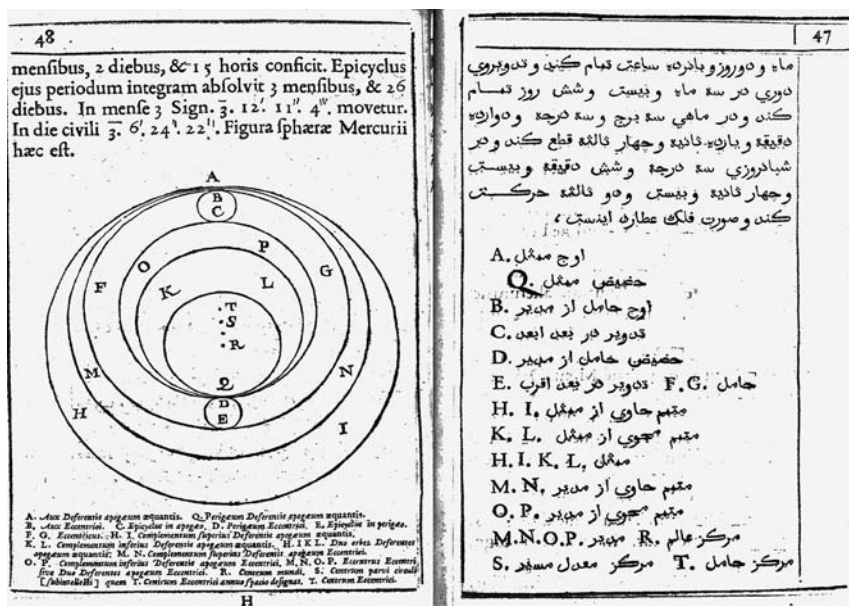 48
mensibus, 2 diebus, & 15 horis conficit. Epicyclus
ejus periodum integram absolvit 3 mensibus, & 26
diebus. In mense 3 Sign. 3. 12'. 11''. 4'''. movetur.
In die civili 3. 6'. 24''. 22'''. Figura sphæræ Mercurii
hæc est.
A
B
C
O P
F G
K L
T
S
R
M N
Q
D
E
H I
A. Aux Deferentis apogæum æquantis. Q. Perigæum Deferentis apogæum æquantis.
B. Aux Eccentrici. C. Epicyclus in apogæo. D. Perigæum Eccentrici. E. Epicyclus in perigæo.
F. G. Eccentricus. H. I. Complementum superius Deferentis apogæum æquantis.
K. L. Complementum inferius Deferentis apogæum æquantis. H I K L. Duo orbes Deferentes
apogæum æquantis. M. N. Complementum superius Deferentis apogæum Eccentrici.
O. P. Complementum inferius Deferentis apogæum Eccentrici, M, N, O, P. Eccentrus Eccentri
sive Duo Deferentes apogæum Eccentrici. R. Centrum mundi, S. Centrum parvi circuli
quem T. Centrum Eccentrici annuo spacio designat. T. Centrum Eccentrici.
H
47
ماه و دو روز و پانزده ساعت تمام کند و تدویروی
دوری در سه ماه و بیست و شش روز تمام
کند و در ماهی سه برج و سه درجه و دوازده
دقیقه و یازده ثانیه و چهار ثالثه قطع کند و در
شبانروزی سه درجه و شش دقیقه و بیست
و چهار ثانیه و بیست و دو ثالثه حرکت
کند و صورت فلک عطارد اینست،
A. اوج ممثل
Q. حضیض ممثل
B. اوج حامل از مدیر
C. تدویر در بعد ابعد
D. حضیض حامل از مدیر
E. تدویر در بعد اقرب F. G. حامل
H. I. متمم حاوی از ممثل
K. L. متمم محوی از ممثل
H. I. K. L. ممثل
M. N. متمم حاوی از مدیر
O. P. متمم محوی از مدیر
M. N. O. P. مدیر R. مرکز عالم
S. مرکز معدل مسیر T. مرکز حامل